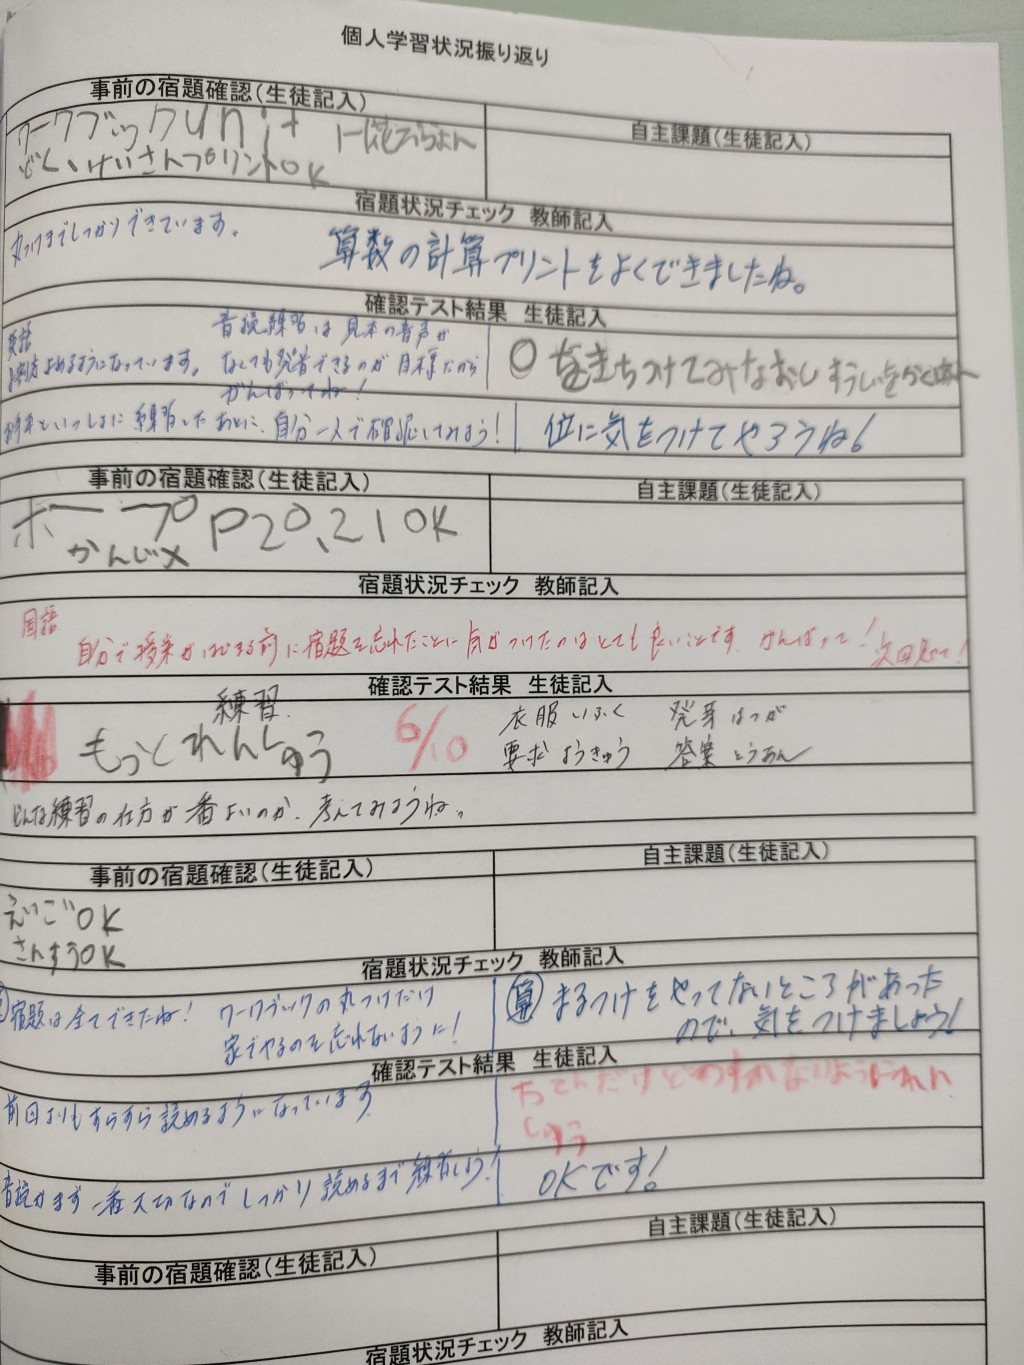 個人学習状況振り返り
事前の宿題確認(生徒記入)
自主課題(生徒記入)
ワークブックunit
けいさんプリントOK
宿題状況チェック 教師記入
丸つけまでしっかりできています。
算数の計算プリントをよくできましたね。
確認テスト結果 生徒記入
英語
よめるようになっています。
音読練習は見本の音声が
なくても発音できるのが目標だから
がんばってね!
いっしょに練習したあとに、自分一人で確認してみよう!
位に気をつけてやろうね!
事前の宿題確認(生徒記入)
自主課題(生徒記入)
ホープP20、21OK
かんじ×
宿題状況チェック 教師記入
国語
自分で授業がはじまる前に宿題を忘れたことに気がつけたのはとても良いことです。がんばって!
確認テスト結果 生徒記入
練習
もっとれんしゅう
6/10
衣服 いふく 発芽 はつが
要求 ようきゅう 答案 とうあん
どんな練習の仕方が一番よいのか、考えてみようね。
事前の宿題確認(生徒記入)
自主課題(生徒記入)
えいごOK
さんすうOK
宿題状況チェック 教師記入
宿題は全てできたね! ワークブックの丸つけだけ
家でやるのを忘れないように!
算 まるつけをやってないところがあった
ので、気をつけましょう!
確認テスト結果 生徒記入
前回よりもすらすら読めるようになっています
だけどわすれないようにれん
しゅう
音読がまず一番大切なのでしっかり読めるまで練習しよう!
OKです!
自主課題(生徒記入)
事前の宿題確認(生徒記入)
宿題状況チェック 教師記入